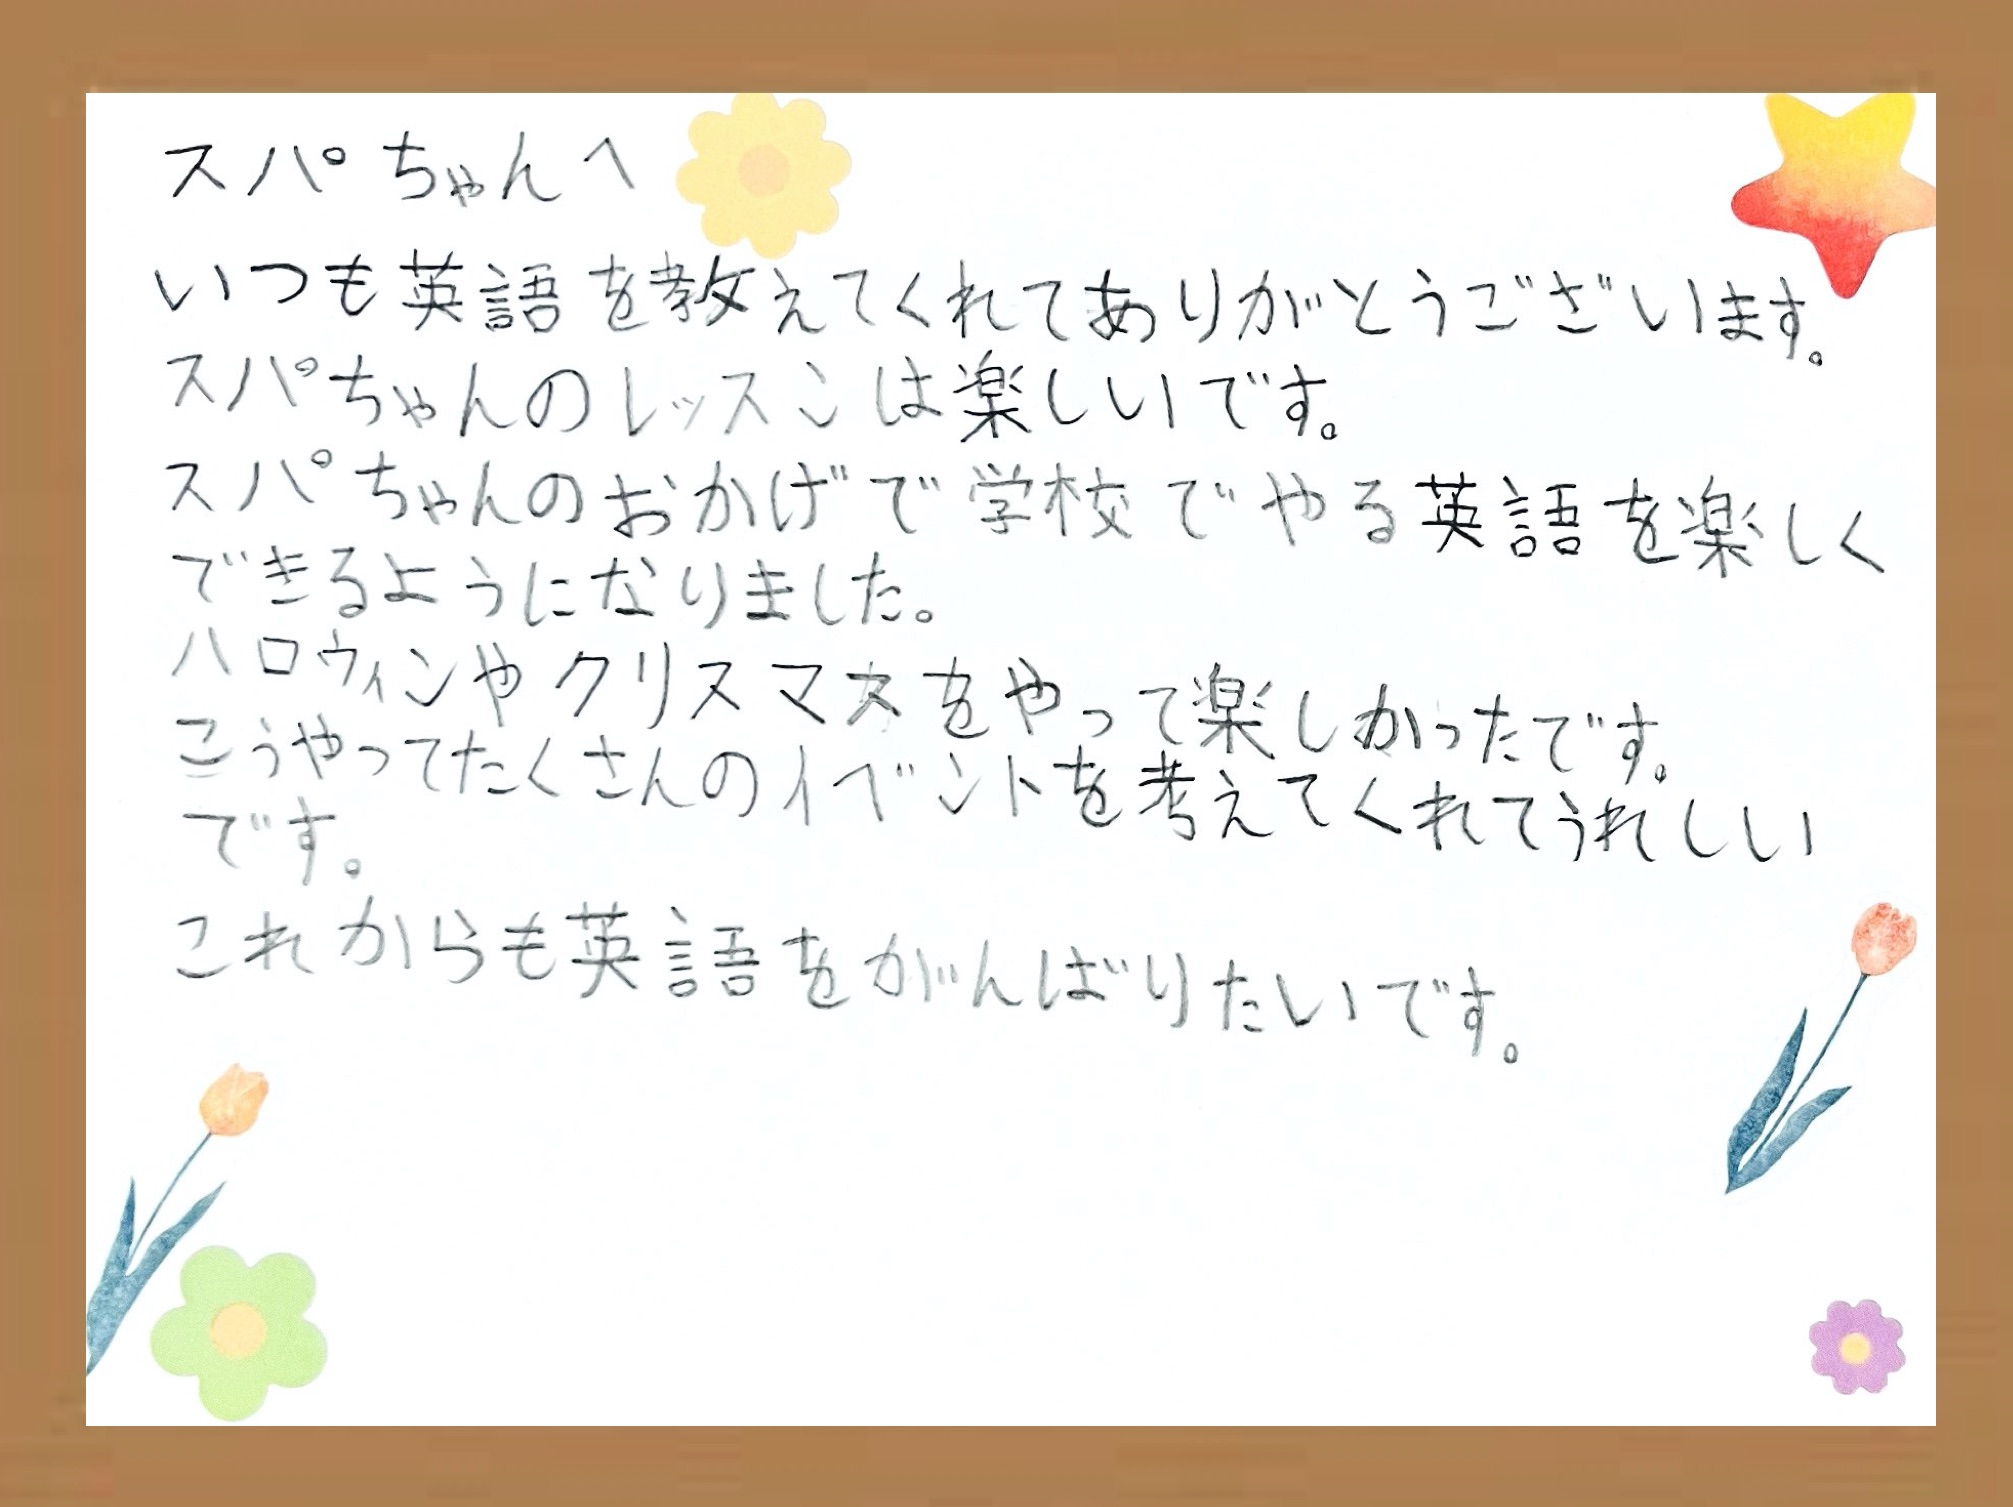 スパちゃんへ
いつも英語を教えてくれてありがとうございます。
スパちゃんのレッスンは楽しいです。
スパちゃんのおかげで学校でやる英語を楽しく
できるようになりました。
ハロウィンやクリスマスをやって楽しかったです。
こうやってたくさんのイベントを考えてくれてうれしい
です。
これからも英語をがんばりたいです。